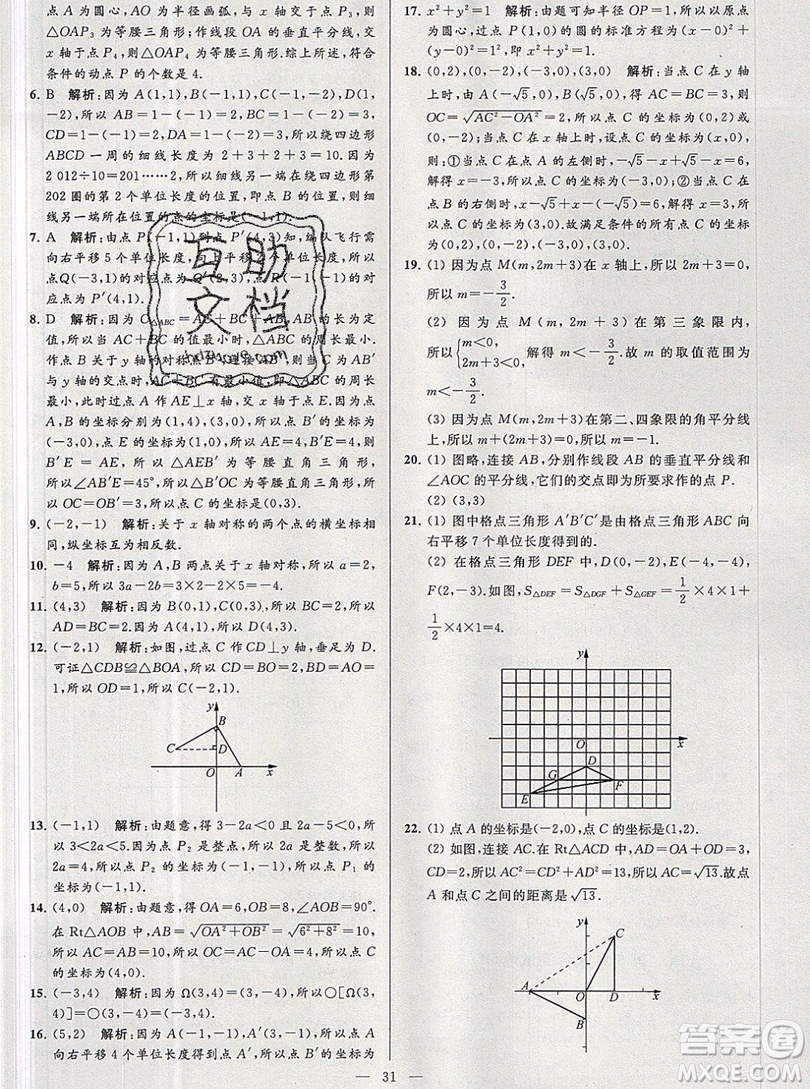 点 A 为圆心，AO 为半径画弧，与 x 轴交于点 P₃，则
△OAP₃ 为等腰三角形；④作线段 OA 的垂直平分线，与
x 轴交于点 P₄，则△OAP₄ 为等腰三角形.综上所述，符合
条件的动点 P 的个数是 4.
6. B 解析：因为 A(1,1)，B(-1,1)，C(-1,-2)，D(1,
-2)，所以 AB=1-(-1)=2，BC=1-(-2)=3，
CD=1-(-1)=2，DA=1-(-2)=3，所以绕四边形
ABCD 一周的细线长度为 2+3+2+3=10. 因为
2 012÷10=201……2，所以细线另一端在绕四边形第
202 圈的第 2 个单位长度的位置，即点 B 的位置，所以细
线另一端所在位置的点的坐标是(-1,1).
7. A 解析：由点 P(-1,1)到点 P′(4,3)知，编队飞行需
向右平移 5 个单位长度、向上平移 2 个单位长度，所以
点Q(-3,1)的对应点为 Q′(2,3)，点 R(-1,-1)的对
应点为 P′(4,1).
8. D 解析：因为 C△ABC=AC+BC+AB，AB 的长为定
值，所以当 AC+BC 的值最小时，△ABC 的周长最小.作
点 B 关于 y 轴的对称点 B′，连接 AB′，所以当 C 为 AB′
与 y 轴的交点时，AC+BC 有最小值，即△ABC 的周长
最小.过点 A 作 AE⊥x 轴，交 x 轴于点 E.因为点 A，B
的坐标分别为(1,4)，(3,0)，所以点 B′的坐标为
(-3,0)，点 E 的坐标为(1,0)，所以 AE=4，B′E=4，则
B′E=AE，所以△AEB′为等腰直角三角形，
所以∠AB′E=45°，所以△COB′为等腰直角三角形，
所以 OC=OB′=3，所以点 C 的坐标是(0,3).
9. (-2,-1) 解析：关于 x 轴对称的两个点的横坐标相
同，纵坐标互为相反数.
10. -4 解析：因为 A，B 两点关于 x 轴对称，所以 a=2，
b=5，所以 3a-2b=3×2-2×5=-4.
11. (4,3) 解析：因为 B(0,1)，C(0,3)，所以 BC=2，所以
AD=BC=2.因为 A(4,1)，所以 D(4,3).
12. (-2,1) 解析：如图，过点 C 作 CD⊥y 轴，垂足为 D.
可证△CDB≌△BOA，所以 CD=BO=2，BD=AO=
1，所以 OD=1，所以 C(-2,1).
y
B
C
D
O
A
x
13. (-1,1) 解析：由题意，得 3-2a<0 且 2a-5<0，所
以 3<2a<5.因为点 P₂ 是整点，所以 2a 为整数，所以
2a=4，所以点 P₂ 的坐标为(-1,-1)，所以点 P₁ 的
坐标为(-1,1).
14. (4,0) 解析：由题意，得 OA=6，OB=8，∠AOB=90°.
在 Rt△AOB 中，AB=√OA²+OB²=√6²+8²=10，
所以 AC=AB=10，所以 OC=AC-OA=4，所以点 C
的坐标为(4,0).
15. (-3,4) 解析：因为 Ω(3,4)=(3,-4)，所以○[Ω(3,
4)]=○(3,-4)=(-3,4).
16. (5,2) 解析：因为 A(-1,-1)，A′(3,-1)，所以点 A
向右平移 4 个单位长度得到点 A′.因为点 B 的坐标为
17. x²+y²=1 解析：由题可知半径 OP=1，所以以原点
为圆心，过点 P(1,0)的圆的标准方程为(x-0)²+
(y-0)²=1²，即 x²+y²=1.
18. (0,2)，(0,-2)，(-3,0)，(3,0) 解析：当点 C 在 y 轴
上时，由点 A(-√5,0)，B(√5,0)，AC+BC=6，则
OC=√AC²-OA²=2，所以点 C 的坐标为(0,2)或
(0,-2)；当点 C 在 x 轴上时，设点 C 的坐标为(x,0)，
则：①当点 C 在点 A 的左侧时，-x-√5-x+√5=6，
解得 x=-3，所以点 C 的坐标为(-3,0)；②当点 C 在点
B 的右侧时，x-√5+x+√5=6，解得 x=3，所
以点 C 的坐标为(3,0).故满足条件的所有点 C 的坐
标为(0,2)，(0,-2)，(-3,0)，(3,0).
19. (1) 因为点 M(m,2m+3)在 x 轴上，所以 2m+3=0，
所以 m=-3/2.
(2) 因为点 M(m,2m+3)在第三象限内，
所以{m<0, 2m+3<0, 解得 m<-3/2.故 m 的取值范围为
m<-3/2.
(3) 因为点 M(m,2m+3)在第二、四象限的角平分线
上，所以 m+(2m+3)=0，所以 m=-1.
20. (1) 图略，连接 AB，分别作线段 AB 的垂直平分线与
∠AOC 的平分线，它们的交点即为所求的点 P.
(2) (3,3)
21. (1) 图中格点三角形 A′B′C′是由格点三角形 ABC 向
右平移 7 个单位长度得到的.
(2) 在格点三角形 DEF 中，D(0,-2)，E(-4,-4)，
F(2,-3).如图，S△DEF=S△DGF+S△GEF=1/2×4×1+
1/2×4×1=4.
y
O
x
D
G
F
E
22. (1) 点 A 的坐标是(-2,0)，点 C 的坐标是(1,2).
(2) 如图，连接 AC.在 Rt△ACD 中，AD=OA+OD=3，
CD=2，所以 AC²=CD²+AD²=13，所以 AC=√13.故点
A 和点 C 之间的距离是√13.
y
C
A
O
D
x
B
— 31 —
互助
文档
答案圈
MXQE.COM